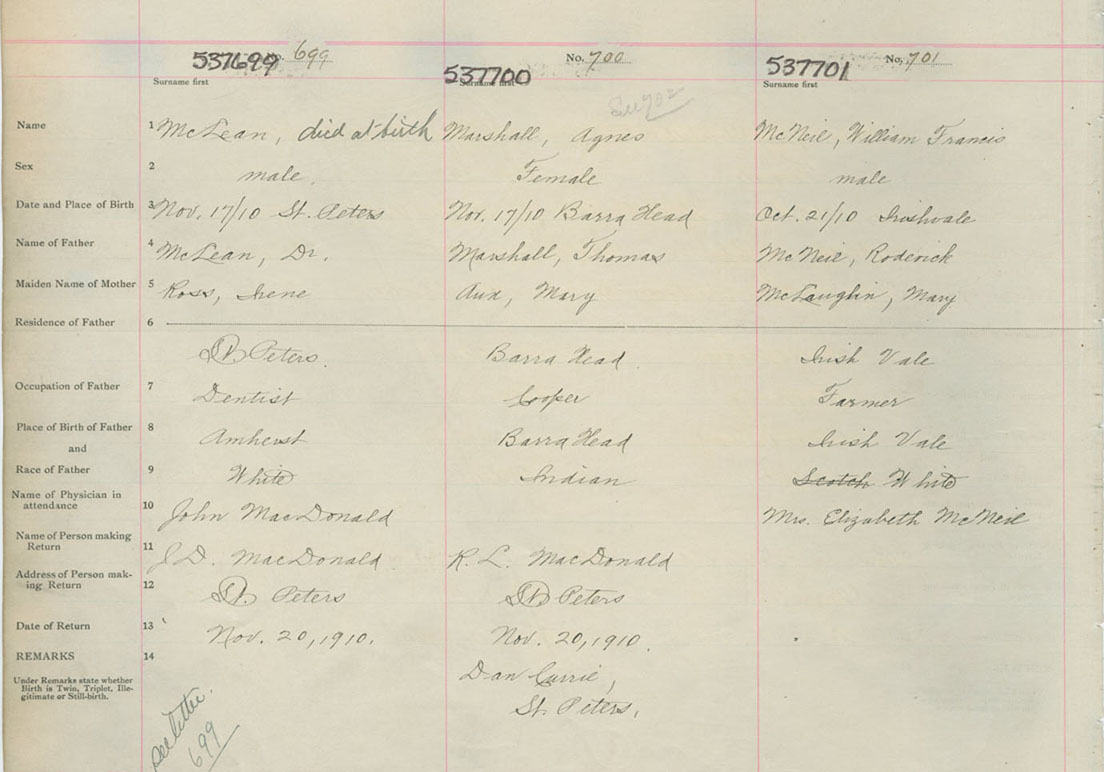 537699 699 537700 No. 700 537701 No. 701
Surname first Surname first Surname first
See 702
Name 1 McLean, died at birth Marshall, Agnes McNeil, William Francis
Sex 2 male. Female male
Date and Place of Birth 3 Nov. 17/10 St. Peters Nov. 17/10 Barra Head Oct. 21/10 Irishvale
Name of Father 4 McLean, Dr. Marshall, Thomas McNeil, Roderick
Maiden Name of Mother 5 Ross, Irene Mary McLaughlin, Mary
Residence of Father 6
St. Peters. Barra Head. Irish Vale
Occupation of Father 7 Dentist Cooper Farmer
Place of Birth of Father 8 Amherst Barra Head Irish Vale
and
Race of Father 9 White Indian Scotch White
Name of Physician in
attendance 10 John MacDonald Mrs. Elizabeth McNeil
Name of Person making
Return 11 J.D. MacDonald R. L. MacDonald
Address of Person mak-
ing Return 12 St. Peters St. Peters
Date of Return 13 Nov. 20, 1910. Nov. 20, 1910.
REMARKS 14
Dan Currie,
Under Remarks state whether
Birth is Twin, Triplet, Ille-
gitimate or Still-birth.
St. Peters,
see letter
699